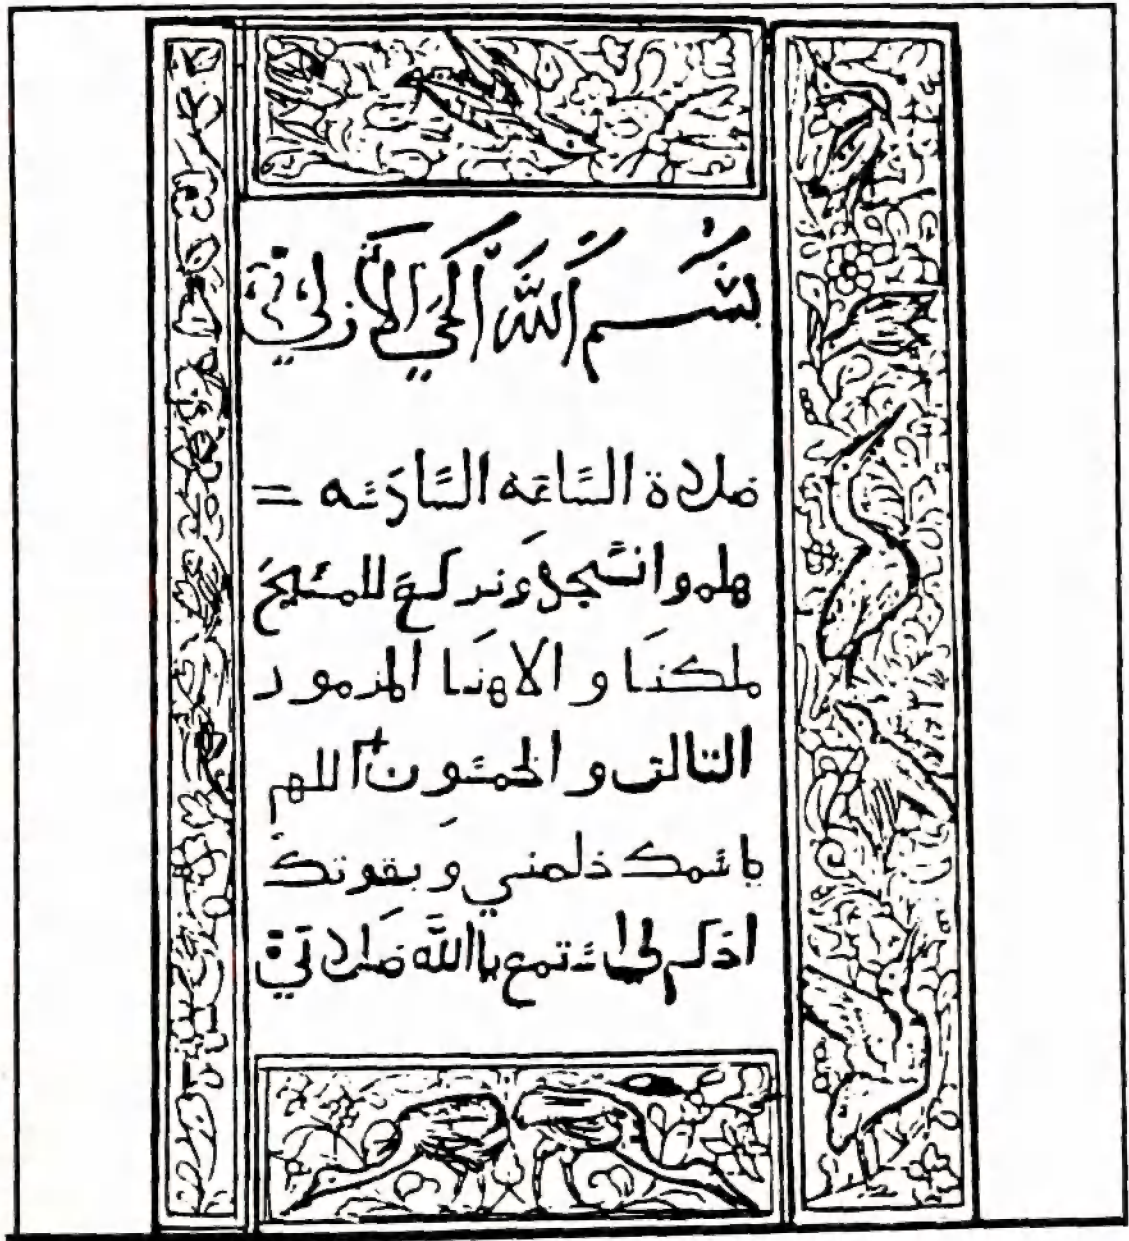 بسم الله الحي الازلي
صلاة الساعه السادسه =
هلموا نسجد ونركع للمسيح
ملكنا والاهنا المزمور
الثالث والخمسون + اللهم
باسمك خلصني وبقوتك
احكم لي استمع يا الله صلاتي